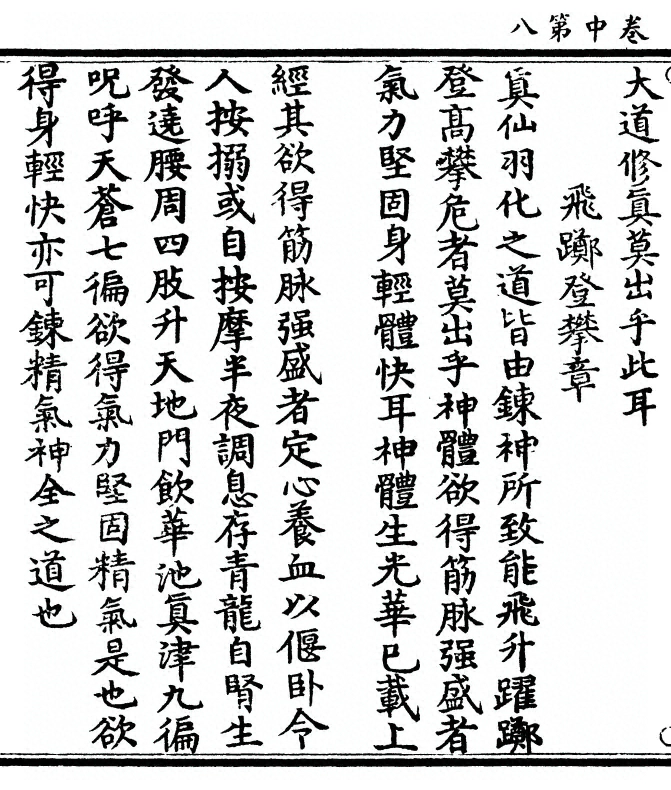 卷中第八
大道修眞莫出乎此耳
飛躑登攀章
眞仙羽化之道皆由鍊神所致能飛升躍躑
登髙攀危者莫出乎神體欲得筋脉强盛者
氣力堅固身輕體快耳神體生光華已載上
經其欲得筋脉强盛者定心養血以偃卧令
人按搦或自按摩半夜調息存青龍自腎生
發遶腰周四肢升天地門飲華池眞津九徧
呪呼天蒼七徧欲得氣力堅固精氣是也欲
得身輕快亦可鍊精氣神全之道也